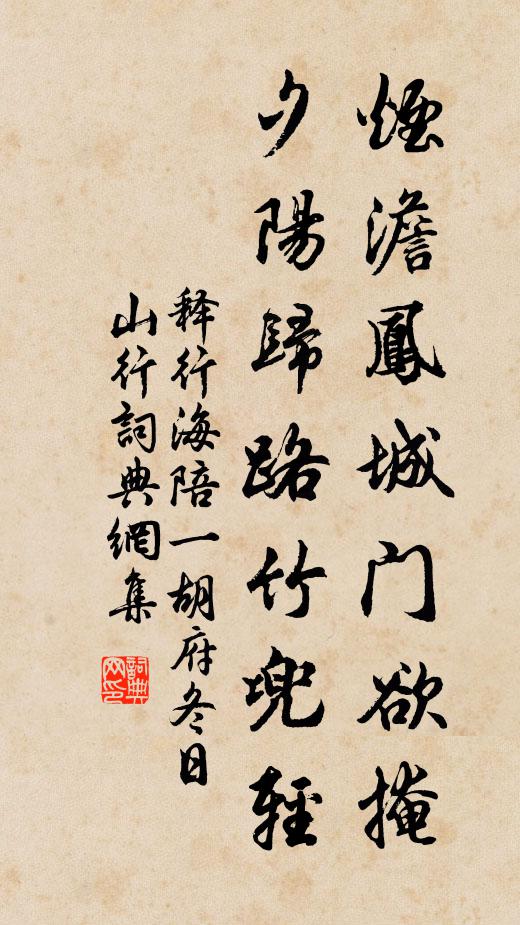 煙澹鳳城门欲掩
夕陽歸路竹兜輕
释行海陪一胡府冬日
山行詞典網集
詞典网印